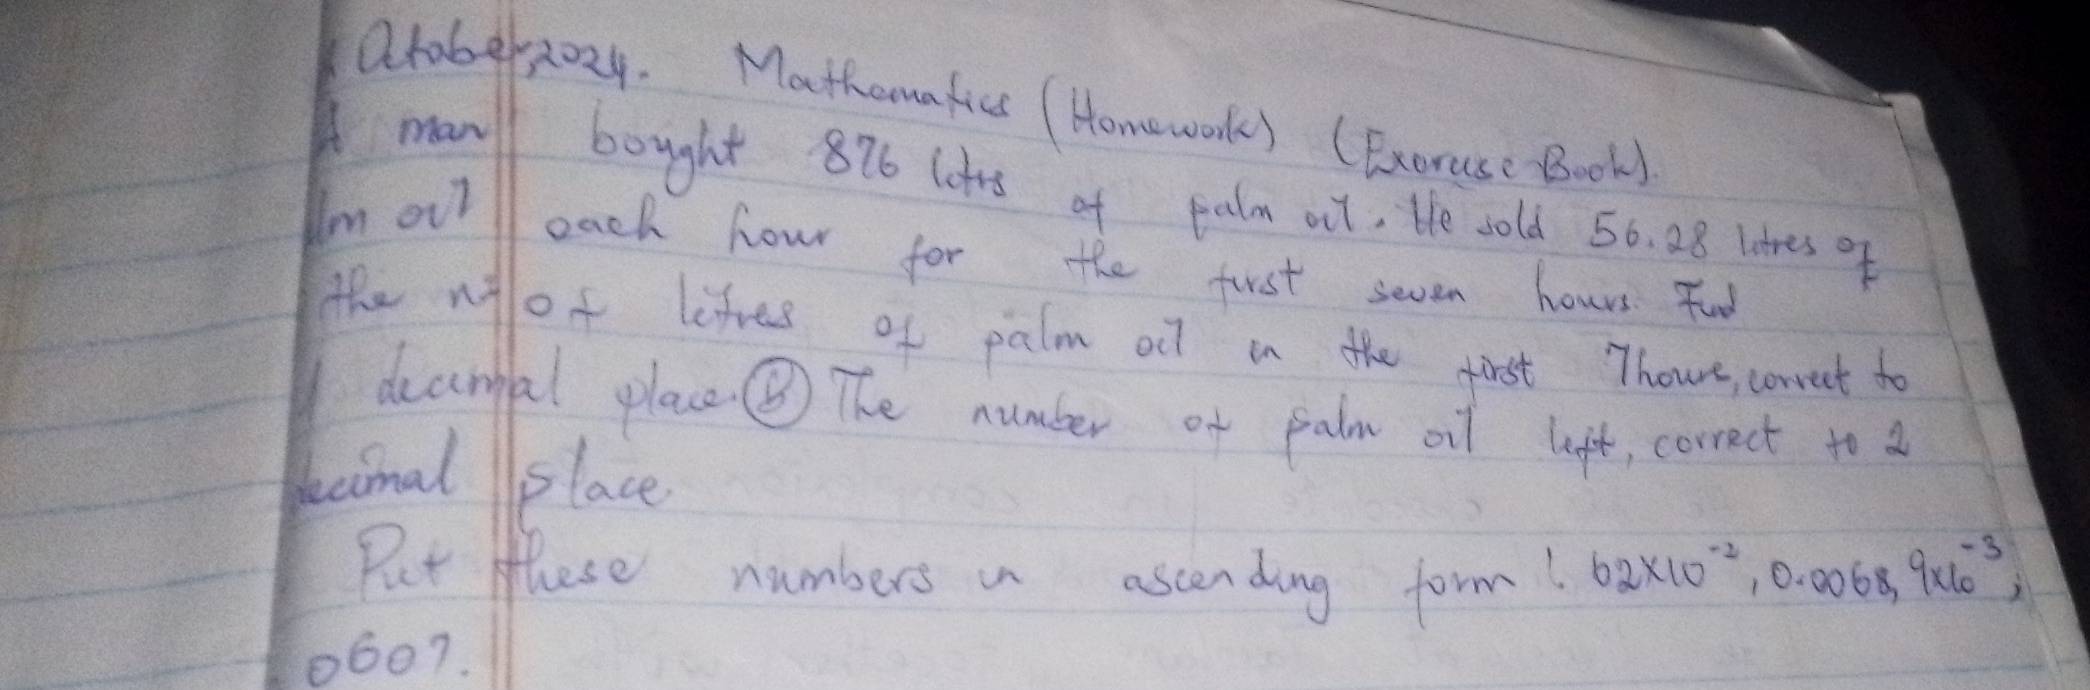 October, 2024. Mathematics (Homework) (Exercise Book).
A man bought 876 litrs of palm oil. He sold 56.28 litres of
lm oil each hour for the first seven hours. Find
the nº of litres of palm oil in the first 7hours, correct to
1 decimal place. (B) The number of palm oil left, correct to 2
ecimal place.
Put these numbers in ascending form: 62x10⁻², 0.0068, 9x10⁻³,
0607.